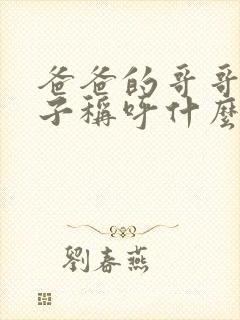 爸爸的哥哥
子稱呼什麼
劉春燕